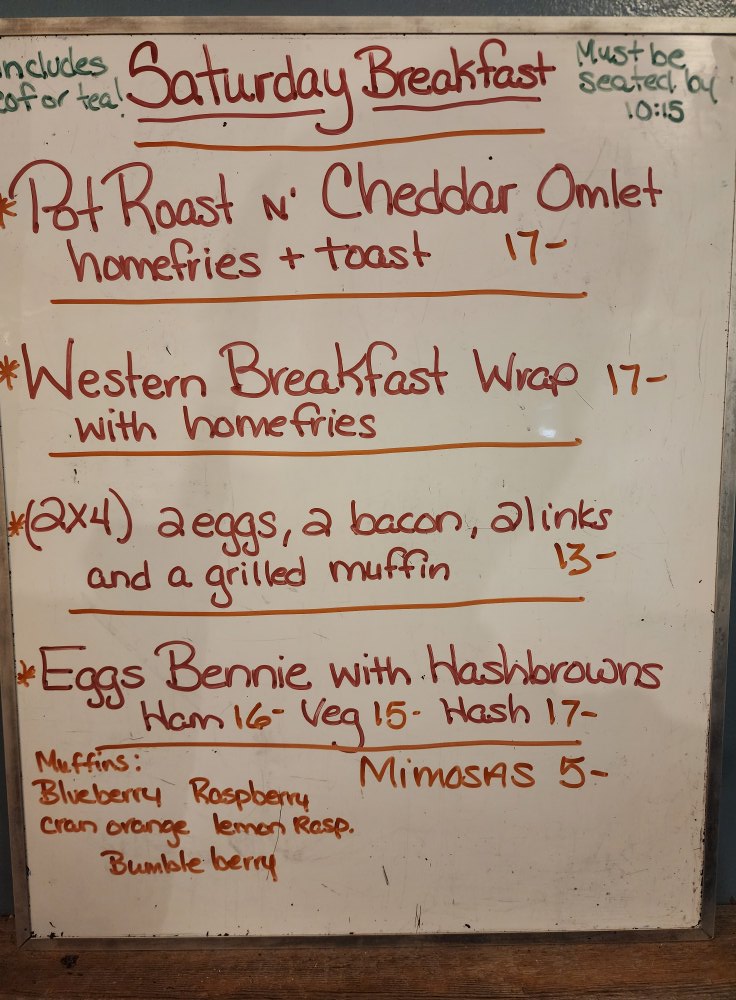 includes
cof or tea!
Saturday Breakfast
Must be
seated by
10:15
*Pot Roast N' Cheddar Omlet
homefries + toast 17-
*Western Breakfast Wrap 17-
with homefries
*(2x4) 2 eggs, 2 bacon, 2 links
and a grilled muffin 13-
*Eggs Bennie with Hashbrowns
Ham 16- Veg 15- Hash 17-
Muffins:
Blueberry Raspberry
cran orange lemon Rasp.
Bumble berry
Mimosas 5-